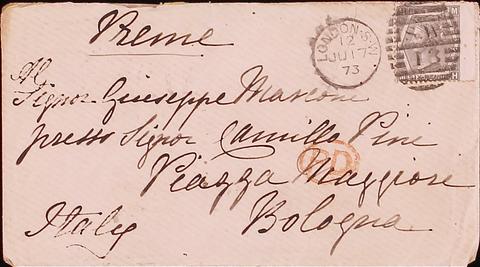 Reme
LONDON·S.W
12
JU 17
73
S.W
13
Al
Signor Giuseppe Mascone
presso Signor Camillo Pini
PD
Piazza Maggiore
Italy Bologna